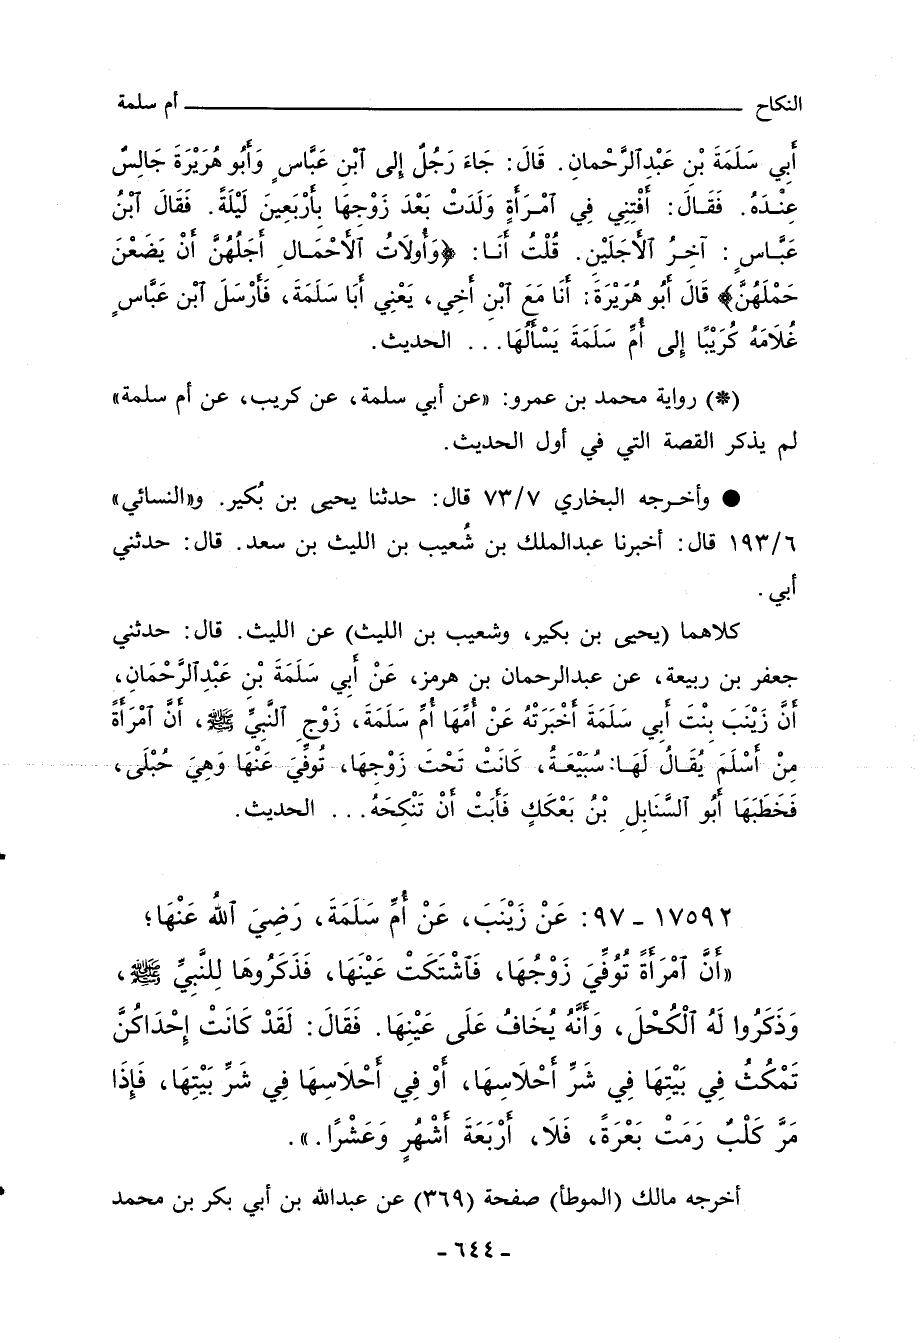 النكاح ـــــــــــــــــــــــــــــــــــــــــ أم سلمة
أَبِي سَلَمَةَ بْنِ عَبْدِالرَّحْمانِ. قَالَ: جَاءَ رَجُلٌ إِلى ٱبْنِ عَبَّاسٍ وَأَبُو هُرَيْرَةَ جَالِسٌ
عِنْدَهُ. فَقَالَ: أَفْتِنِي فِي ٱمْرَأَةٍ وَلَدَتْ بَعْدَ زَوْجِهَا بِأَرْبَعِينَ لَيْلَةً. فَقَالَ ٱبْنُ
عَبَّاسٍ: آخِرُ ٱلْأَجَلَيْنِ. قُلْتُ أَنَا: ﴿وَأُولَاتُ ٱلْأَحْمَالِ أَجَلُهُنَّ أَنْ يَضَعْنَ
حَمْلَهُنَّ﴾ قَالَ أَبُو هُرَيْرَةَ: أَنَا مَعَ ٱبْنِ أَخِي، يَعْنِي أَبَا سَلَمَةَ، فَأَرْسَلَ ٱبْنِ عَبَّاسٍ
غُلَامَهُ كُرَيْبًا إِلى أُمِّ سَلَمَةَ يَسْأَلُهَا... الحديث.
(*) رواية محمد بن عمرو: «عن أبي سلمة، عن كريب، عن أم سلمة»
لم يذكر القصة التي في أول الحديث.
● وأخرجه البخاري ٧٣/٧ قال: حدثنا يحيى بن بُكير. و«النسائي»
١٩٣/٦ قال: أخبرنا عبدالملك بن شُعيب بن الليث بن سعد. قال: حدثني
أبي.
كلاهما (يحيى بن بكير، وشعيب بن الليث) عن الليث. قال: حدثني
جعفر بن ربيعة، عن عبدالرحمان بن هرمز، عَنْ أَبِي سَلَمَةَ بْنِ عَبْدِٱلرَّحْمَانِ،
أَنَّ زَيْنَبَ بِنْتَ أَبِي سَلَمَةَ أَخْبَرَتْهُ عَنْ أُمِّهَا أُمِّ سَلَمَةَ، زَوْجِ ٱلنَّبِيِّ ﷺ، أَنَّ ٱمْرَأَةً
مِنْ أَسْلَمَ يُقَالُ لَهَا: سُبَيْعَةُ، كَانَتْ تَحْتَ زَوْجِهَا، تُوفِّيَ عَنْهَا وَهِيَ حُبْلَى،
فَخَطَبَهَا أَبُو ٱلسَّنَابِلِ بْنُ بَعْكَكٍ فَأَبَتْ أَنْ تَنْكِحَهُ... الحديث.
١٧٥٩٢ ـ ٩٧: عَنْ زَيْنَبَ، عَنْ أُمِّ سَلَمَةَ، رَضِيَ ٱللهُ عَنْهَا؛
«أَنَّ ٱمْرَأَةً تُوُفِّيَ زَوْجُهَا، فَٱشْتَكَتْ عَيْنَهَا، فَذَكَرُوهَا لِلنَّبِيِّ ﷺ،
وَذَكَرُوا لَهُ ٱلْكُحْلَ، وَأَنَّهُ يُخَافُ عَلَى عَيْنِهَا. فَقَالَ: لَقَدْ كَانَتْ إِحْدَاكُنَّ
تَمْكُثُ فِي بَيْتِهَا فِي شَرِّ أَحْلَاسِهَا، أَوْ فِي أَحْلَاسِهَا فِي شَرِّ بَيْتِهَا، فَإِذَا
مَرَّ كَلْبٌ رَمَتْ بَعْرَةً، فَلَا، أَرْبَعَةَ أَشْهُرٍ وَعَشْرًا.».
أخرجه مالك (الموطأ) صفحة (٣٦٩) عن عبدالله بن أبي بكر بن محمد
ـ ٦٤٤ ـ